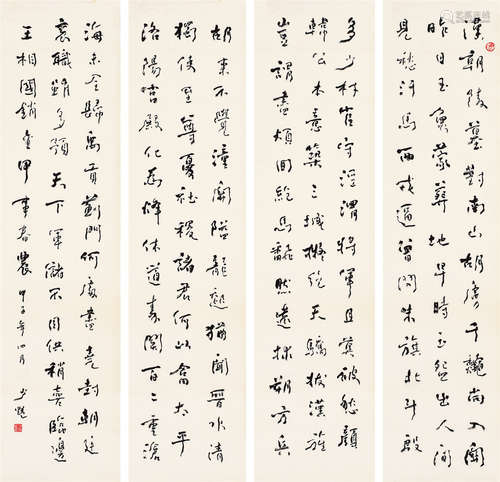 漢朝陵墓對南山胡虜千龝尚入關
昨日玉魚蒙葬地早時玉盌出人間
見愁汗馬西戎逼曾閃朱旗北斗殷
多少材官守涇渭將軍且莫破愁顏
韓公本意築三城擬絕天驕拔漢旌
豈謂盡煩回紇馬翻然遠捄朔方兵
胡來不覺潼關隘龍起猶聞晉水清
獨使至尊憂社稷諸君何以答太平
洛陽宮殿化為烽休道秦關百二重滄
海未全歸禹貢薊門何處盡堯封朝廷
袞職雖多預天下軍儲不自供稍喜臨邊
王相國銷金甲事春農 甲子年四月